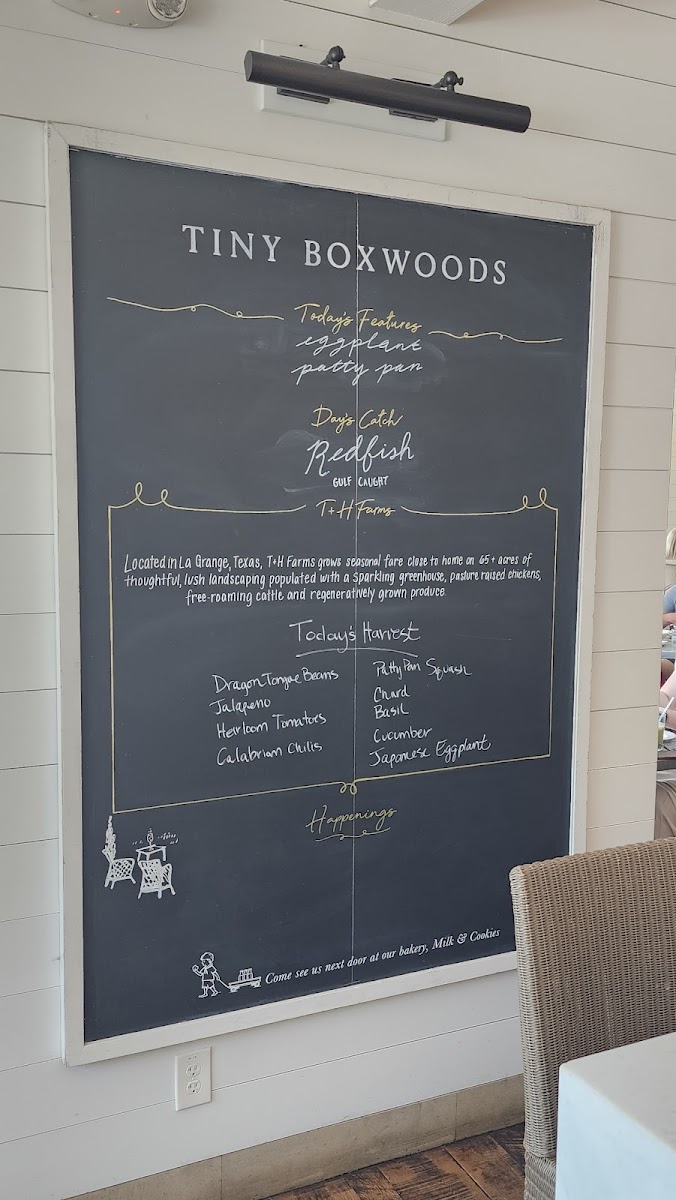 TINY BOXWOODS
Today's Features
eggplant
patty pan
Day's Catch
Redfish
GULF CAUGHT
T+H Farms
Located in La Grange, Texas, T+H Farms grows seasonal fare close to home on 65+ acres of
thoughtful, lush landscaping populated with a sparkling greenhouse, pasture raised chickens,
free-roaming cattle and regeneratively grown produce.
Today's Harvest
Dragon Tongue Beans
Jalapeno
Heirloom Tomatoes
Calabrian Chilis
Patty Pan Squash
Chard
Basil
Cucumber
Japanese Eggplant
Happenings
Come see us next door at our bakery, Milk & Cookies